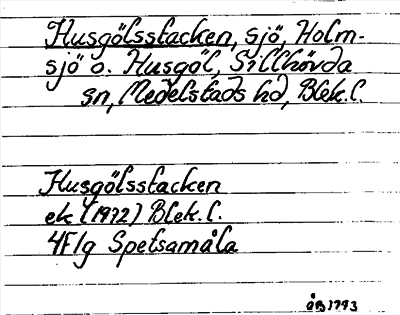 Husgölsstacken, sjö, Holm-
sjö o. Husgöl, Sillhövda
sn, Medelstads hd, Blek.l.
Husgölsstacken
ek (1972) Blek.l.
4F1g Spetsamåla
ÅB 1773